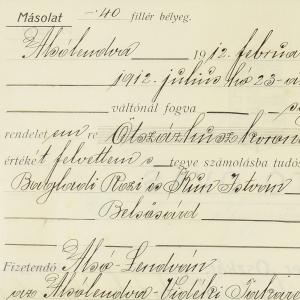 Másolat —·40 fillér bélyeg.
Alsólendva 1912. februá
1912. julius hó 23-á
váltónál fogva
rendeletem re Ötszázhuszkorona
értéket felvettem s tegye számolásba tudós
Rozi és Kun István
Belsősárd
Fizetendő Alsó-Lendván
az Alsólendva-Vidéki Takaré